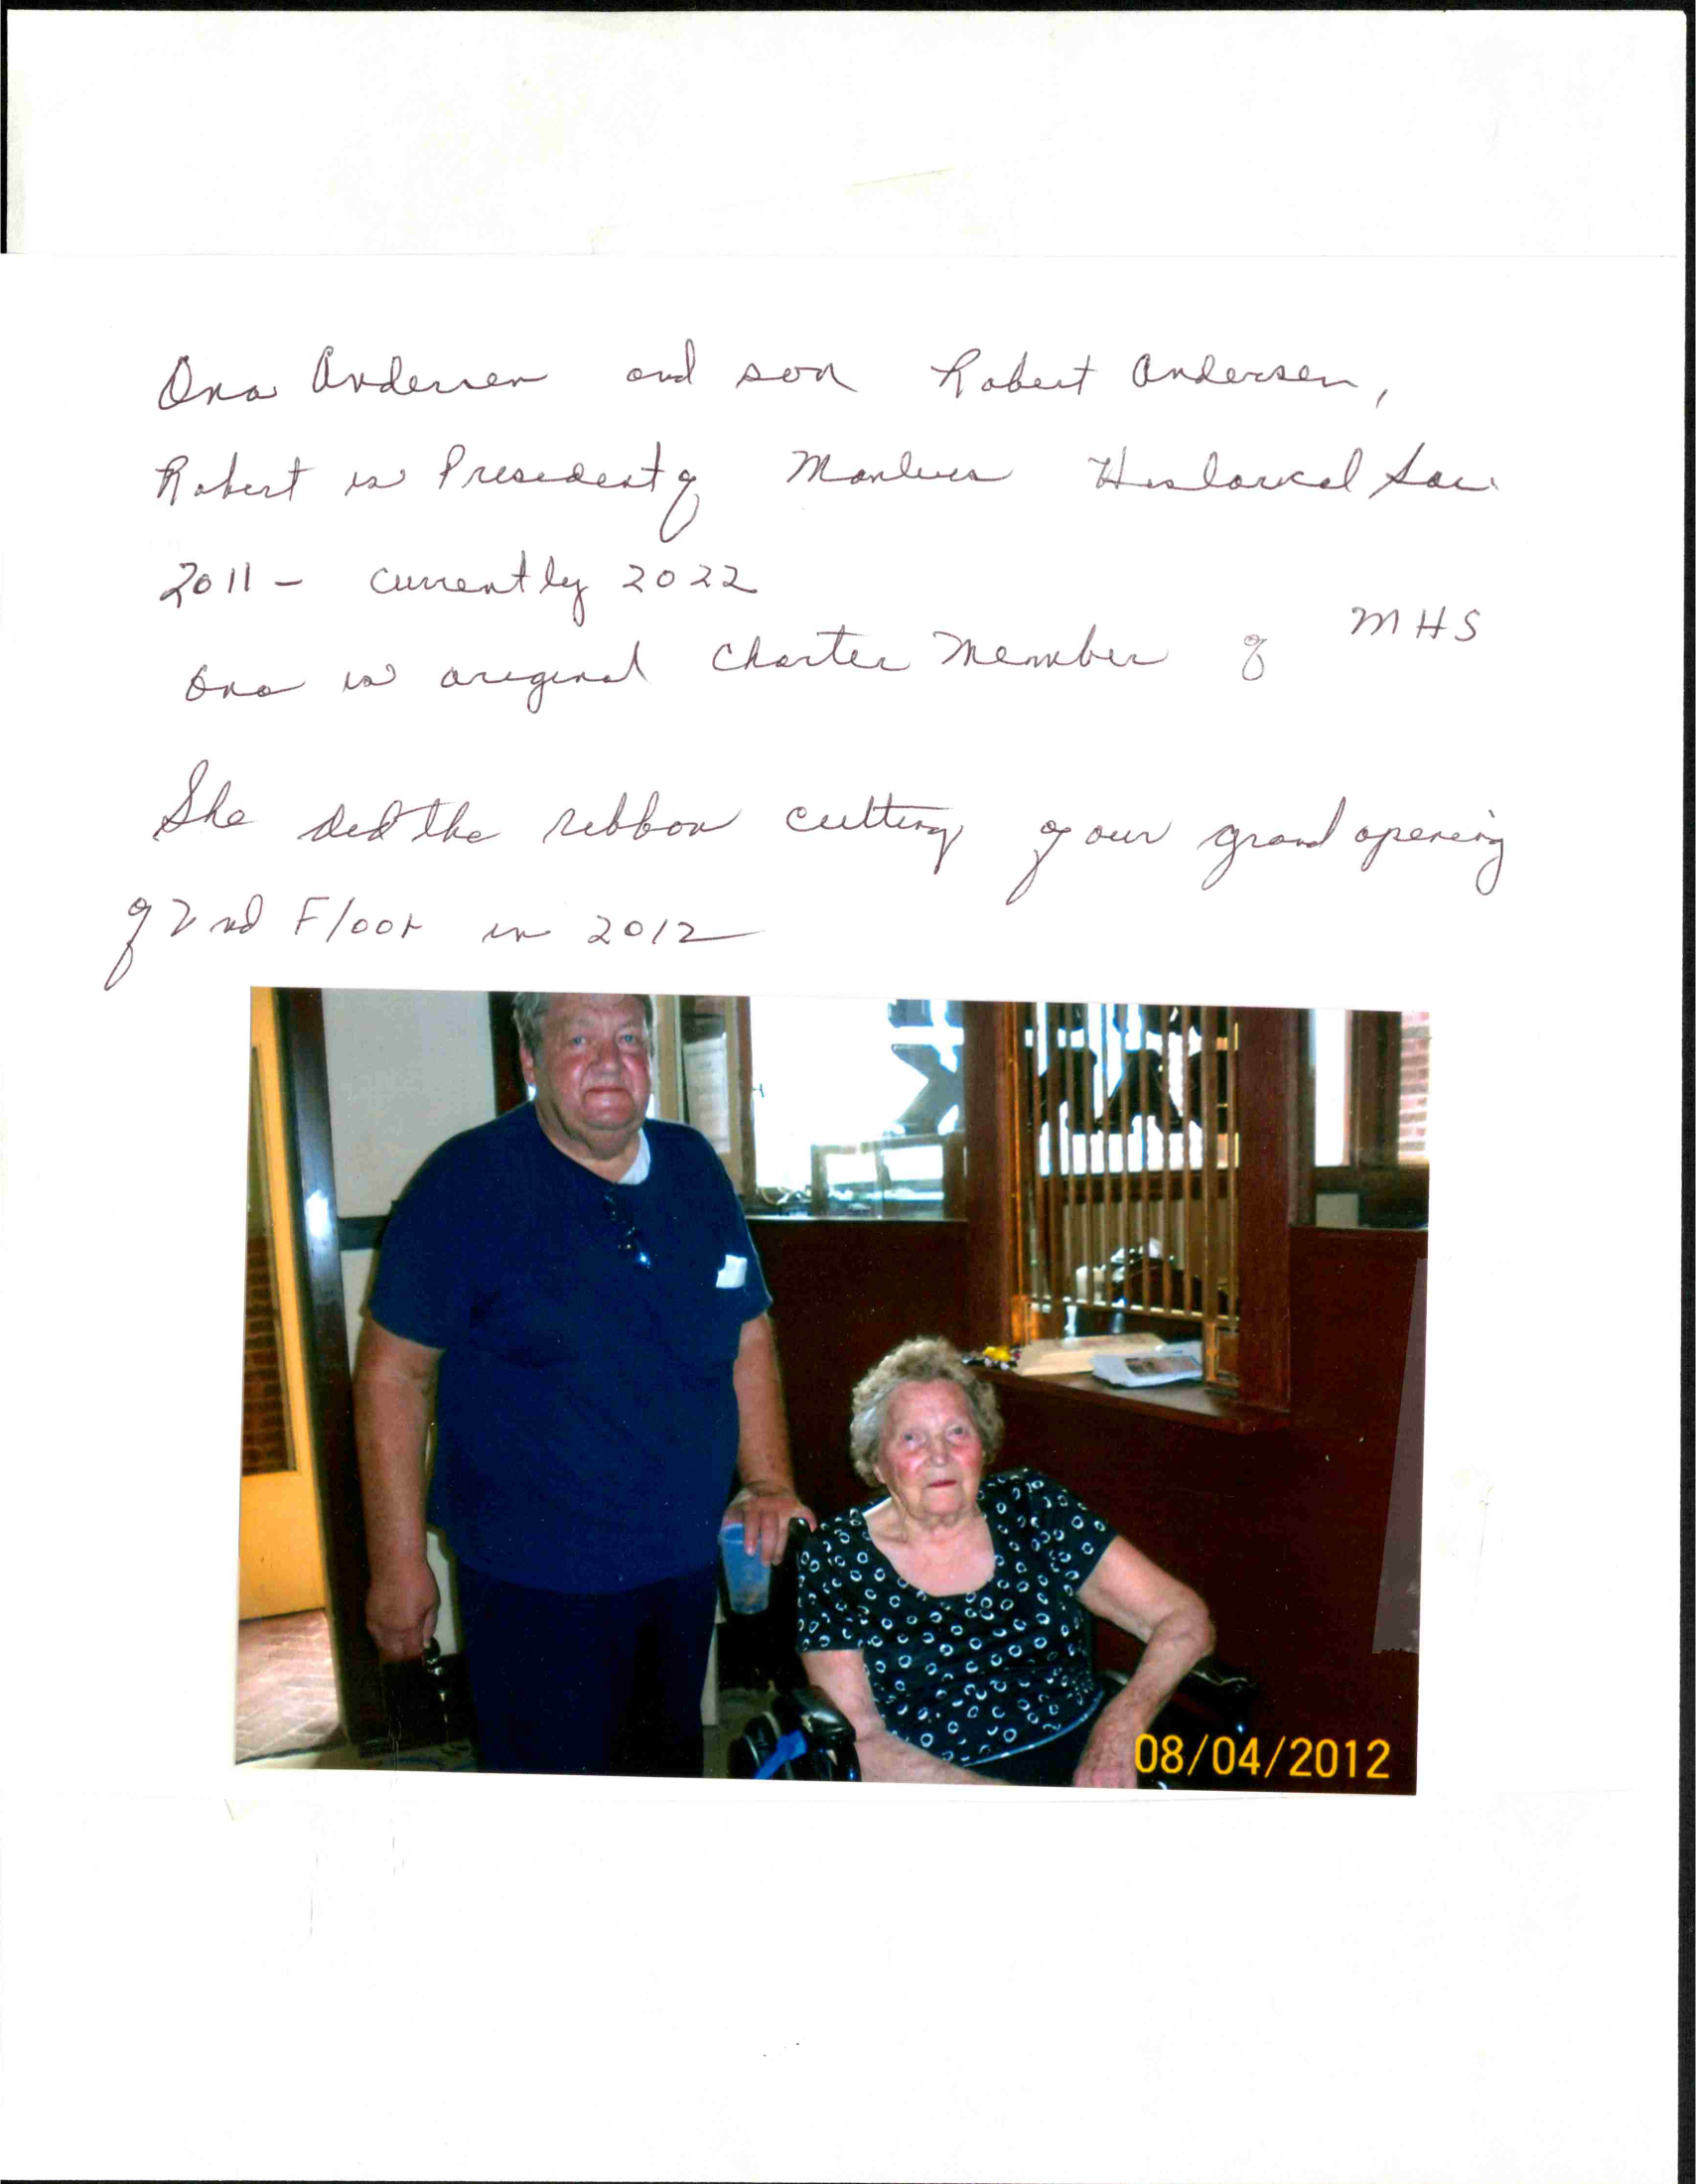 Ona Andersen and son Robert Andersen,
Robert is President of Manlius Historical Soc.
2011 - currently 2022
Ona is original Charter Member of MHS
She did the ribbon cutting of our grand opening
of 2nd Floor in 2012
08/04/2012